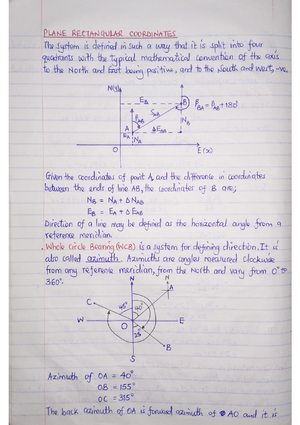 PLANE RECTANGULAR COORDINATES
The system is defined in such a way that it is split into four
quadrants with the typical mathematical convention of the axis
to the North and East being positive, and to the South and West, -ve.
N(y)
E_B
B
β_BA = β_AB + 180
β_AB
S_AB
N_B
A
ΔE_AB
E_A
N_A
O
E(x)
Given the coordinates of point A, and the difference in coordinates
between the ends of line AB, the coordinates of B are;
N_B = N_A + ΔN_AB
E_B = E_A + ΔE_AB
Direction of a line may be defined as the horizontal angle from a
reference meridian.
. Whole Circle Bearing (WCB) is a system for defining direction. It is
also called azimuth. Azimuths are angles measured clockwise
from any reference meridian, from the North and vary from 0° to
360°.
N
N
A
C
45°
W
O
E
25°
B
S
Azimuth of OA = 40°
OB = 155°
OC = 315°
The back azimuth of OA is forward azimuth of AO and it is